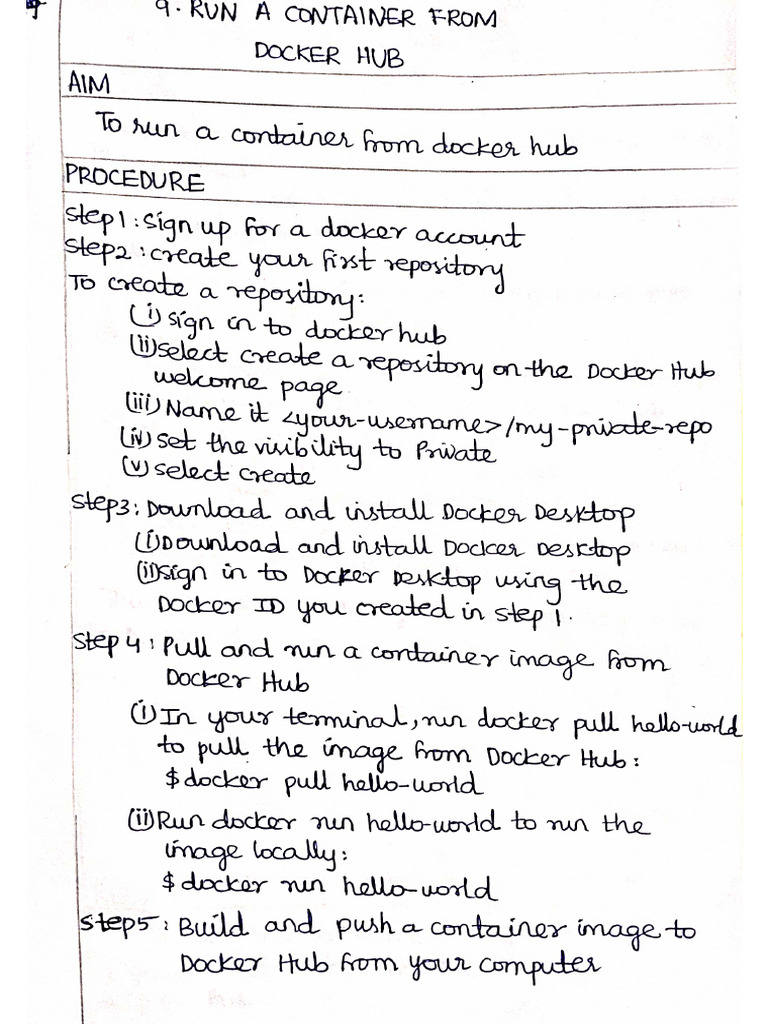 9. RUN A CONTAINER FROM
DOCKER HUB
AIM
To run a container from docker hub
PROCEDURE
Step1: Sign up for a docker account
Step2: create your first repository
To create a repository:
(i) sign in to docker hub
(ii) select create a repository on the Docker Hub
welcome page
(iii) Name it <your-username>/my-private-repo
(iv) set the visibility to Private
(v) select create
Step3: Download and install Docker Desktop
(i) Download and install Docker Desktop
(ii) sign in to Docker Desktop using the
Docker ID you created in step 1.
Step 4: Pull and run a container image from
Docker Hub
(i) In your terminal, run docker pull hello-world
to pull the image from Docker Hub:
$ docker pull hello-world
(ii) Run docker run hello-world to run the
image locally:
$ docker run hello-world
Step5: Build and push a container image to
Docker Hub from your computer